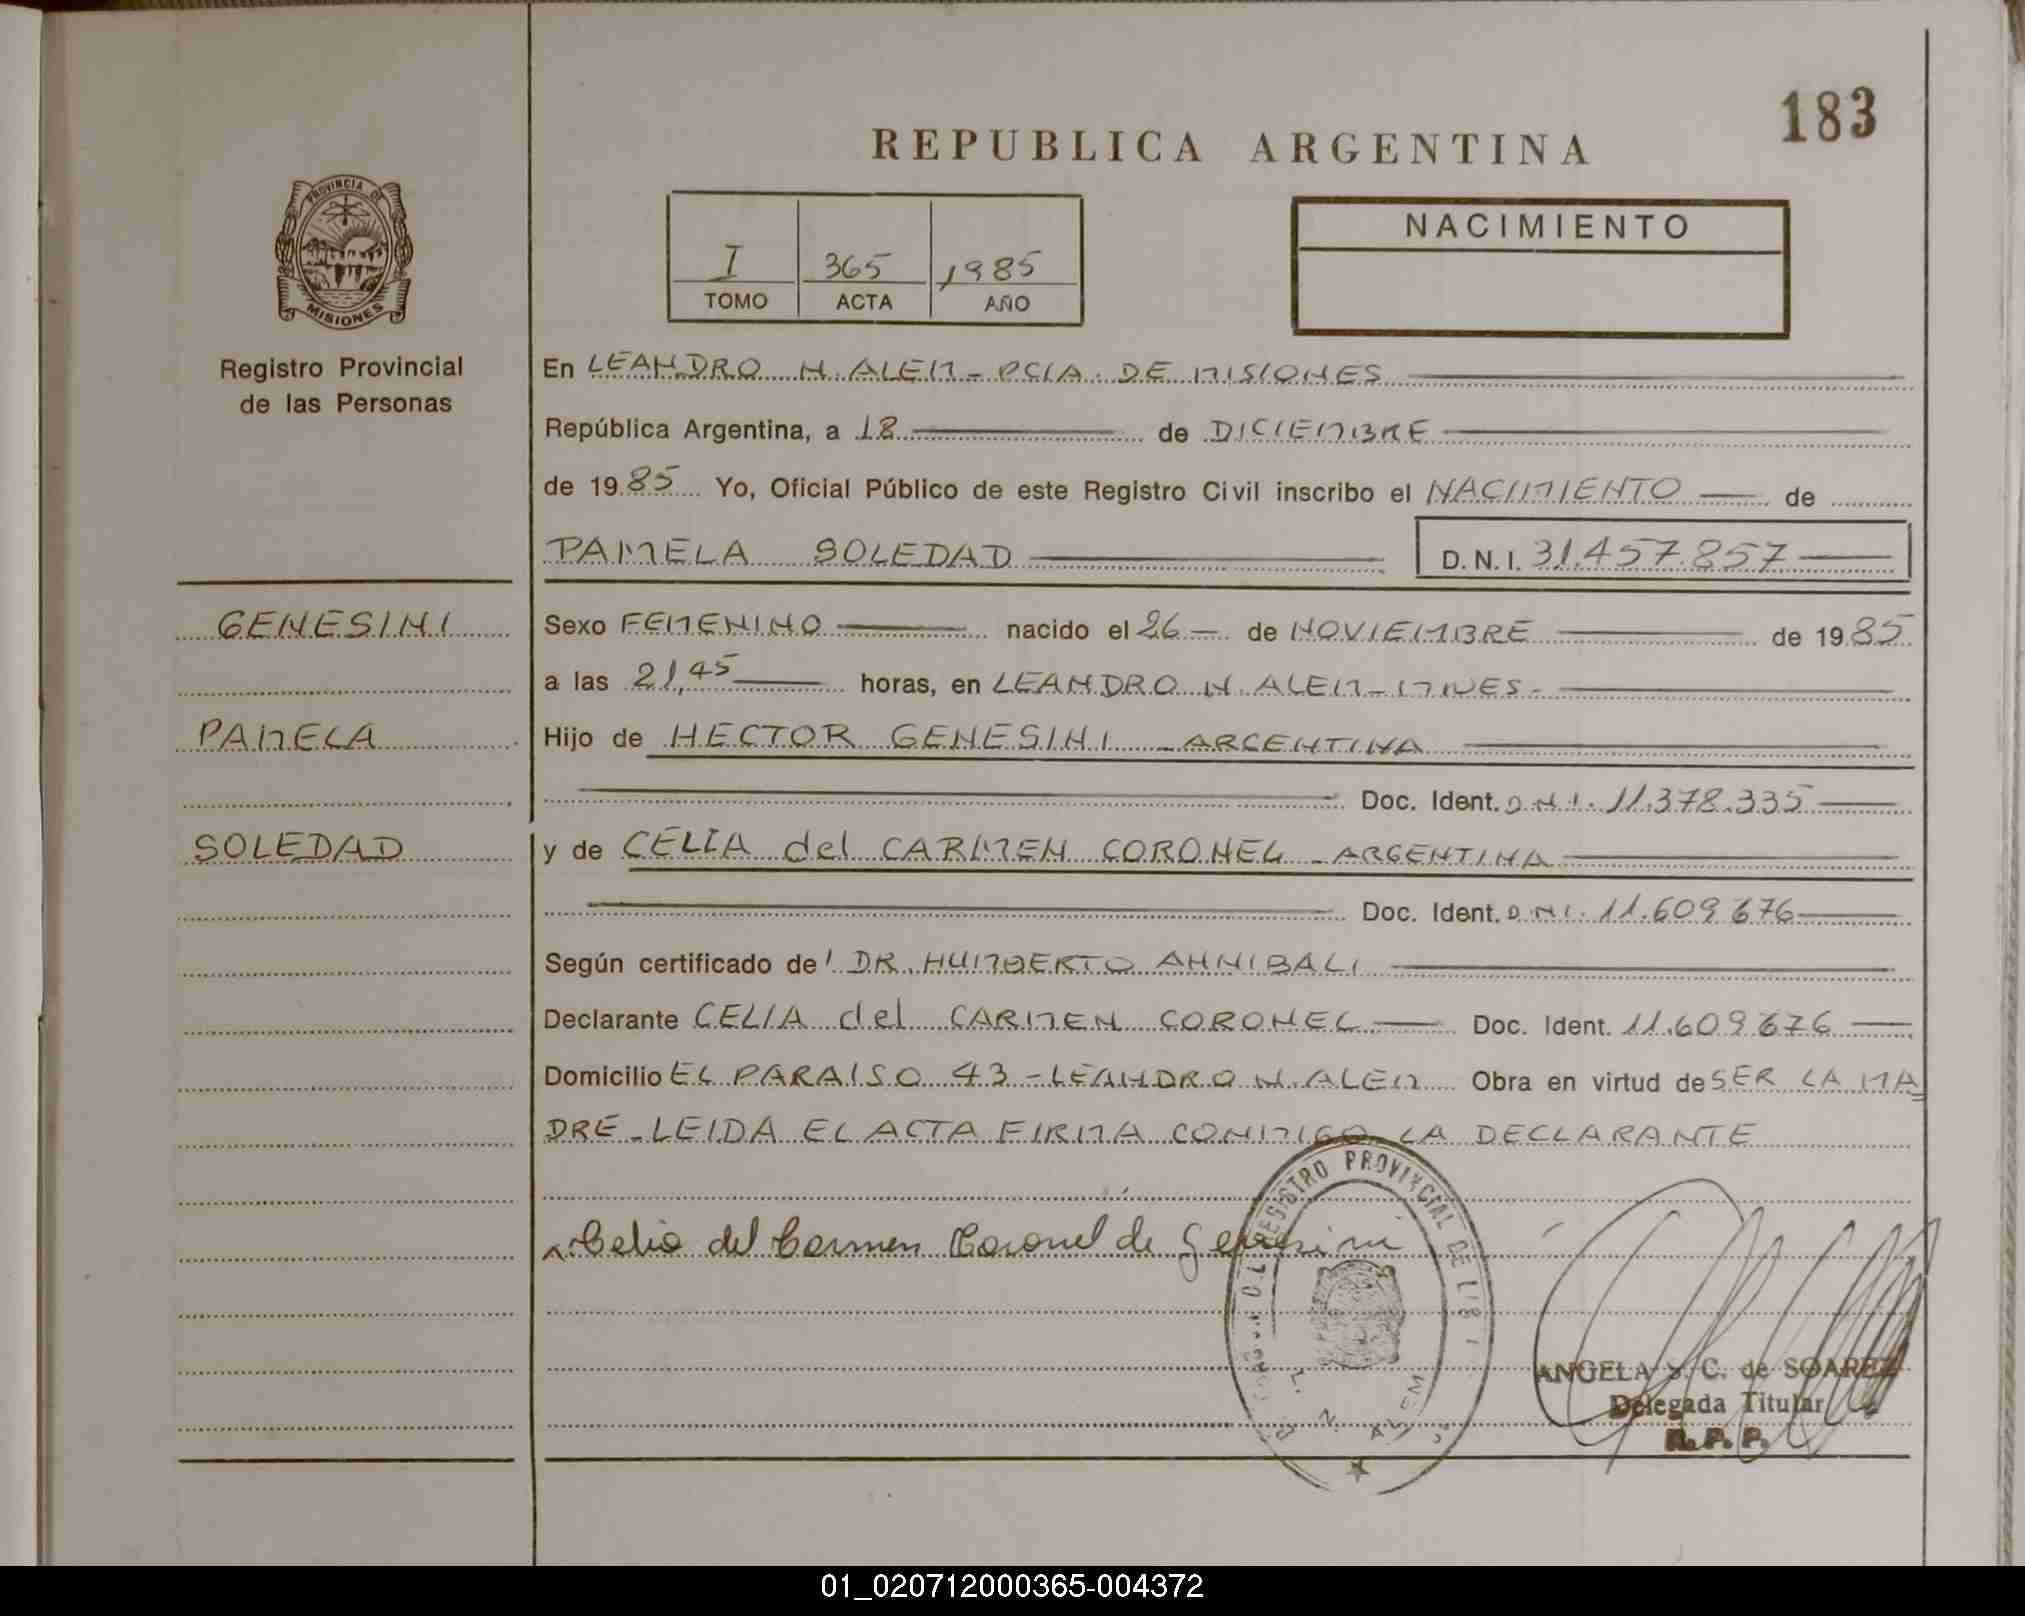 183
REPUBLICA ARGENTINA
PROVINCIA DE
MISIONES
Registro Provincial
de las Personas
I 365 1985
TOMO ACTA AÑO
NACIMIENTO
En LEANDRO N. ALEM - PCIA. DE MISIONES
República Argentina, a 18 de DICIEMBRE
de 1985 Yo, Oficial Público de este Registro Civil inscribo el NACIMIENTO de
PAMELA SOLEDAD D.N.I. 31.457.857
GENESINI
PAMELA
SOLEDAD
Sexo FEMENINO nacido el 26 de NOVIEMBRE de 1985
a las 21,45 horas, en LEANDRO N. ALEM - MNES -
Hijo de HECTOR GENESINI - ARGENTINA
Doc. Ident. D.N.I. 11.378.335
y de CELIA del CARMEN CORONEL - ARGENTINA
Doc. Ident. D.N.I. 11.609.676
Según certificado de DR. HUMBERTO ANNIBALI
Declarante CELIA del CARMEN CORONEL Doc. Ident. 11.609.676
Domicilio EL PARAISO 43 - LEANDRO N. ALEM Obra en virtud de SER LA MA
DRE - LEIDA EL ACTA FIRMA CONMIGO LA DECLARANTE
Celia del Carmen Coronel de Genesini
REGISTRO PROVINCIAL DE
ALEM
ANGELA S. C. de SOAREZ
Delegada Titular
R. P. P.
01_020712000365-004372